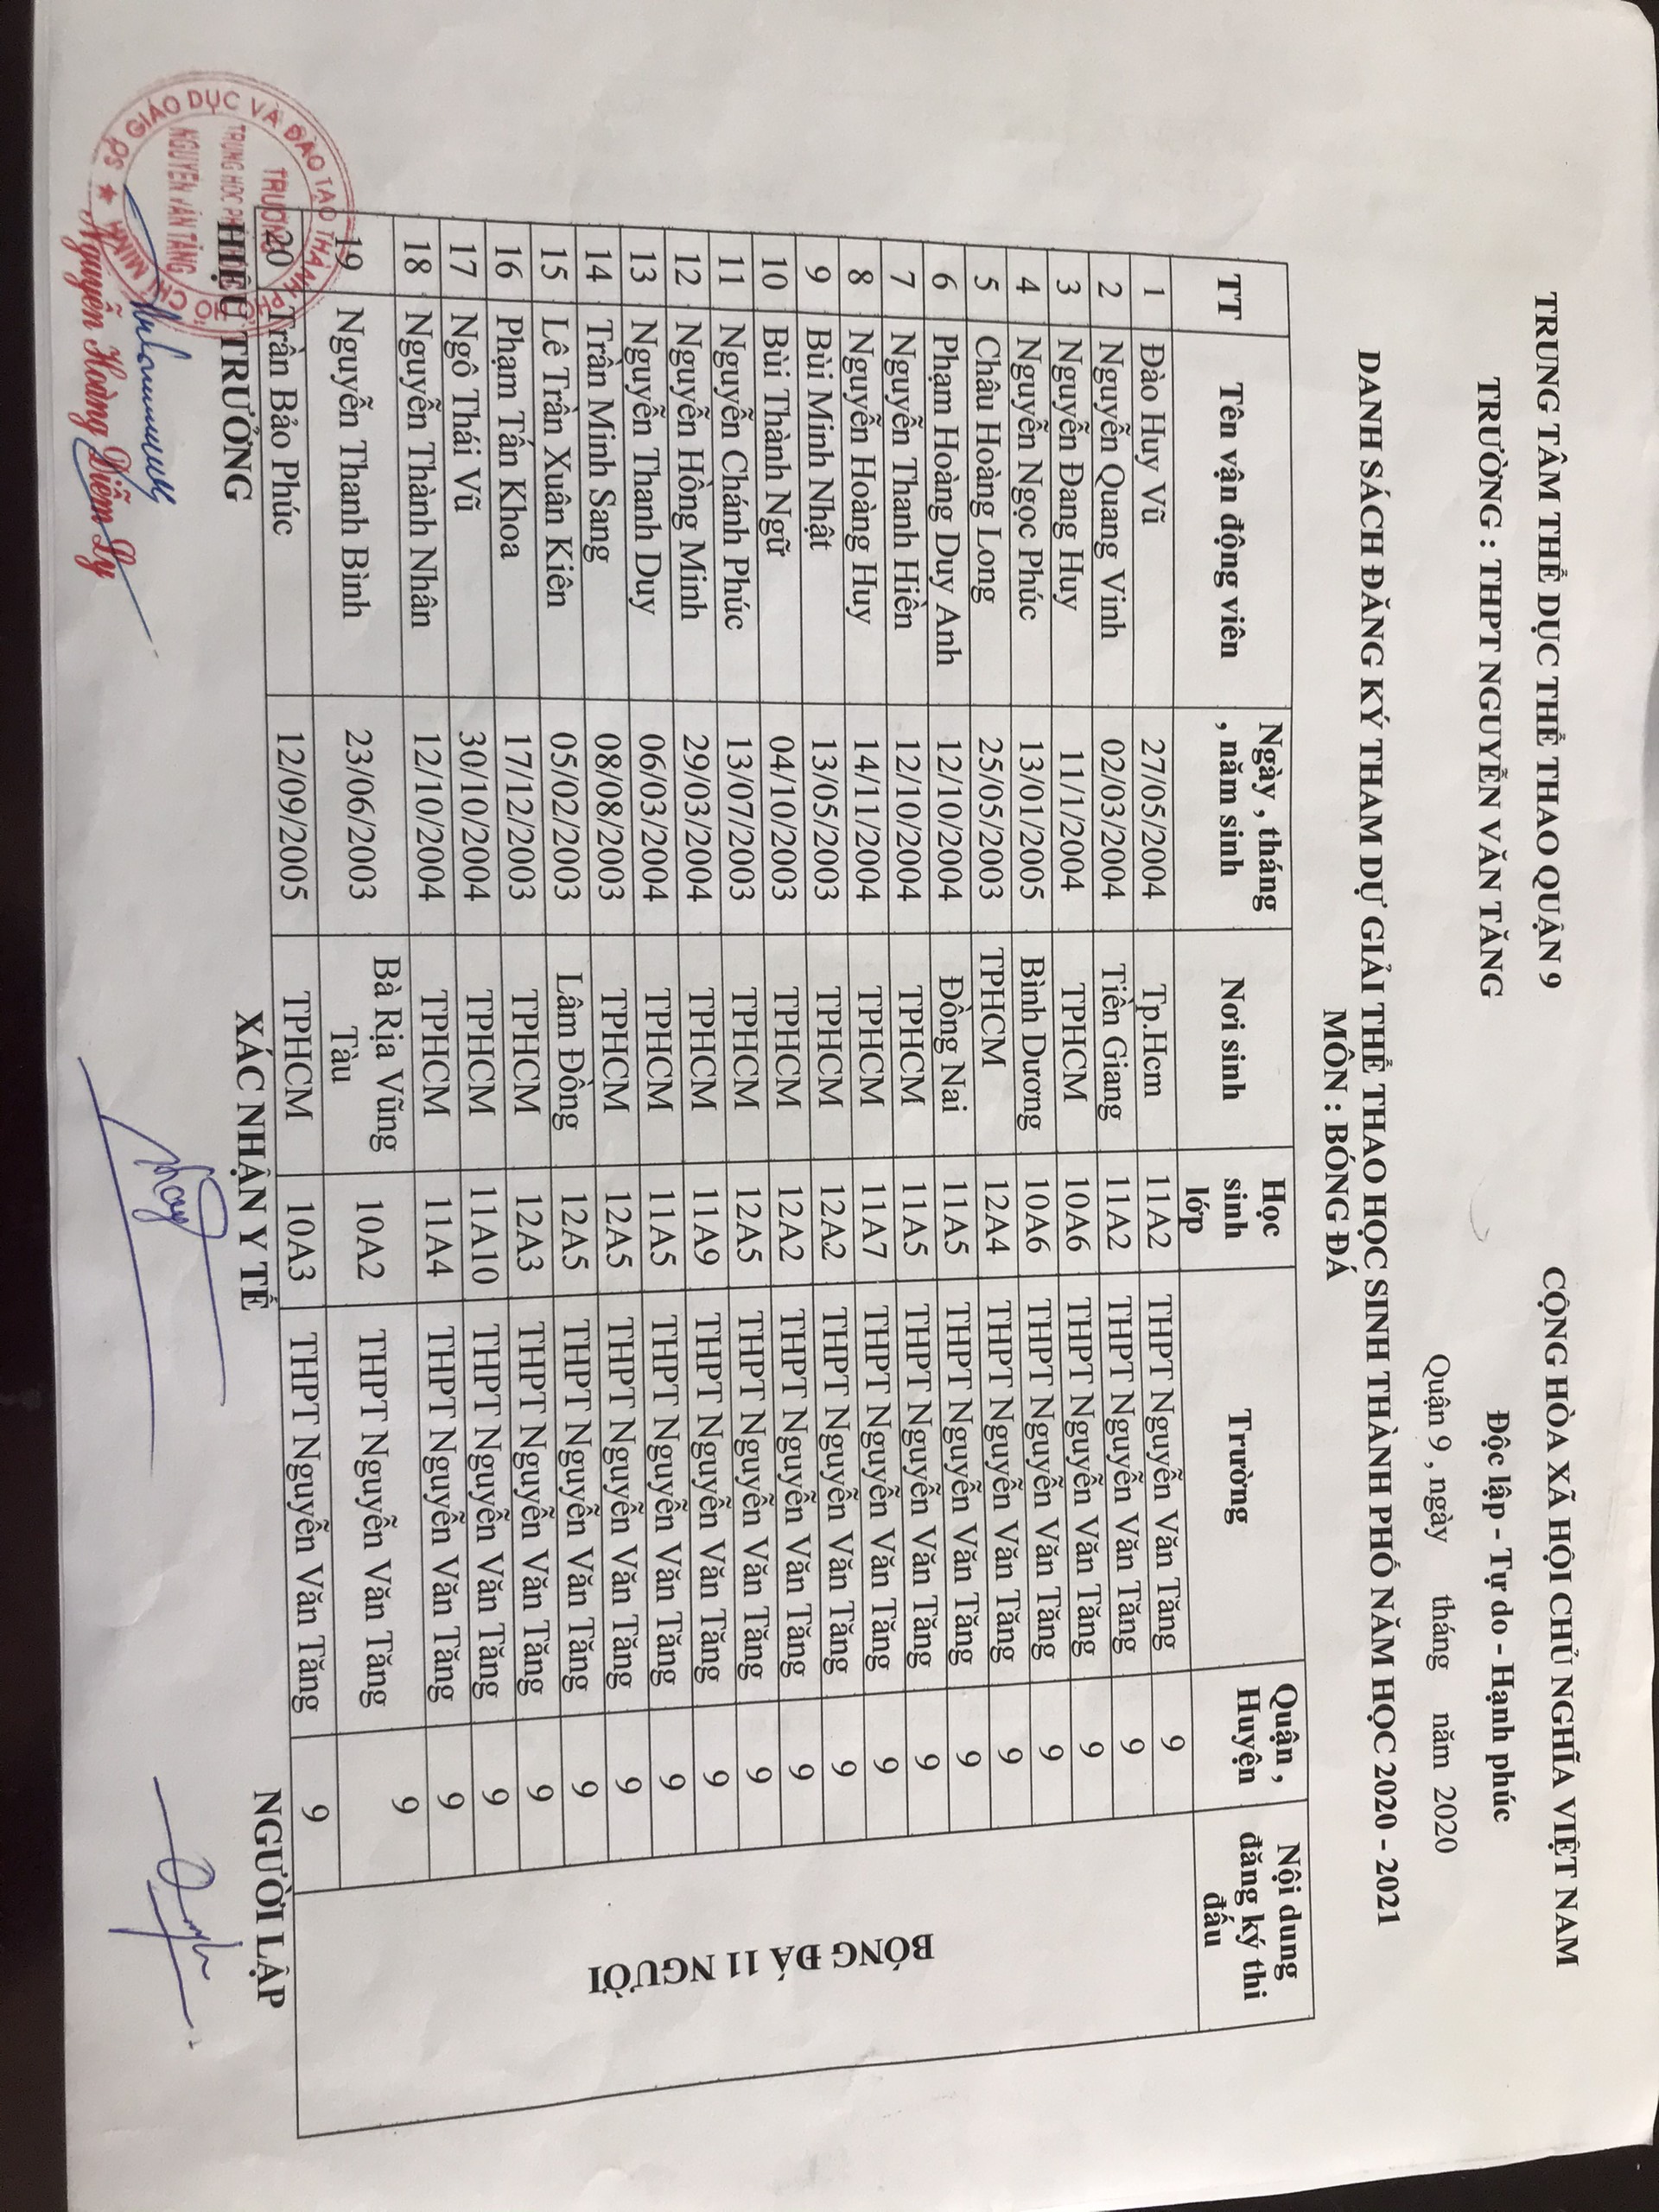 TRUNG TÂM THỂ DỤC THỂ THAO QUẬN 9
CỘNG HÒA XÃ HỘI CHỦ NGHĨA VIỆT NAM
TRƯỜNG : THPT NGUYỄN VĂN TĂNG
Độc lập - Tự do - Hạnh phúc
Quận 9 , ngày tháng năm 2020
DANH SÁCH ĐĂNG KÝ THAM DỰ GIẢI THỂ THAO HỌC SINH THÀNH PHỐ NĂM HỌC 2020 - 2021
MÔN : BÓNG ĐÁ
TT Tên vận động viên Ngày , tháng , năm sinh Nơi sinh Học sinh lớp Trường Quận , Huyện Nội dung đăng ký thi đấu
1 Đào Huy Vũ 27/05/2004 Tp.Hcm 11A2 THPT Nguyễn Văn Tăng 9
2 Nguyễn Quang Vinh 02/03/2004 Tiền Giang 11A2 THPT Nguyễn Văn Tăng 9
3 Nguyễn Đang Huy 11/1/2004 TPHCM 10A6 THPT Nguyễn Văn Tăng 9
4 Nguyễn Ngọc Phúc 13/01/2005 Bình Dương 10A6 THPT Nguyễn Văn Tăng 9
5 Châu Hoàng Long 25/05/2003 TPHCM 12A4 THPT Nguyễn Văn Tăng 9
6 Phạm Hoàng Duy Anh 12/10/2004 Đồng Nai 11A5 THPT Nguyễn Văn Tăng 9
7 Nguyễn Thanh Hiền 12/10/2004 TPHCM 11A5 THPT Nguyễn Văn Tăng 9
8 Nguyễn Hoàng Huy 14/11/2004 TPHCM 11A7 THPT Nguyễn Văn Tăng 9
9 Bùi Minh Nhật 13/05/2003 TPHCM 12A2 THPT Nguyễn Văn Tăng 9
10 Bùi Thành Ngữ 04/10/2003 TPHCM 12A2 THPT Nguyễn Văn Tăng 9
11 Nguyễn Chánh Phúc 13/07/2003 TPHCM 12A5 THPT Nguyễn Văn Tăng 9
12 Nguyễn Hồng Minh 29/03/2004 TPHCM 11A9 THPT Nguyễn Văn Tăng 9
13 Nguyễn Thanh Duy 06/03/2004 TPHCM 11A5 THPT Nguyễn Văn Tăng 9
14 Trần Minh Sang 08/08/2003 TPHCM 12A5 THPT Nguyễn Văn Tăng 9
15 Lê Trần Xuân Kiên 05/02/2003 Lâm Đồng 12A5 THPT Nguyễn Văn Tăng 9
16 Phạm Tấn Khoa 17/12/2003 TPHCM 12A3 THPT Nguyễn Văn Tăng 9
17 Ngô Thái Vũ 30/10/2004 TPHCM 11A10 THPT Nguyễn Văn Tăng 9
18 Nguyễn Thành Nhân 12/10/2004 TPHCM 11A4 THPT Nguyễn Văn Tăng 9
19 Nguyễn Thanh Bình 23/06/2003 Bà Rịa Vũng Tàu 10A2 THPT Nguyễn Văn Tăng 9
20 Trần Bảo Phúc 12/09/2005 TPHCM 10A3 THPT Nguyễn Văn Tăng 9
BÓNG ĐÁ 11 NGƯỜI
HIỆU TRƯỞNG XÁC NHẬN Y TẾ NGƯỜI LẬP
SỞ GIÁO DỤC VÀ ĐÀO TẠO THÀNH PHỐ HỒ CHÍ MINH
TRƯỜNG
TRUNG HỌC
NGUYỄN VĂN TĂNG
Nguyễn Hoàng Diễm Ly